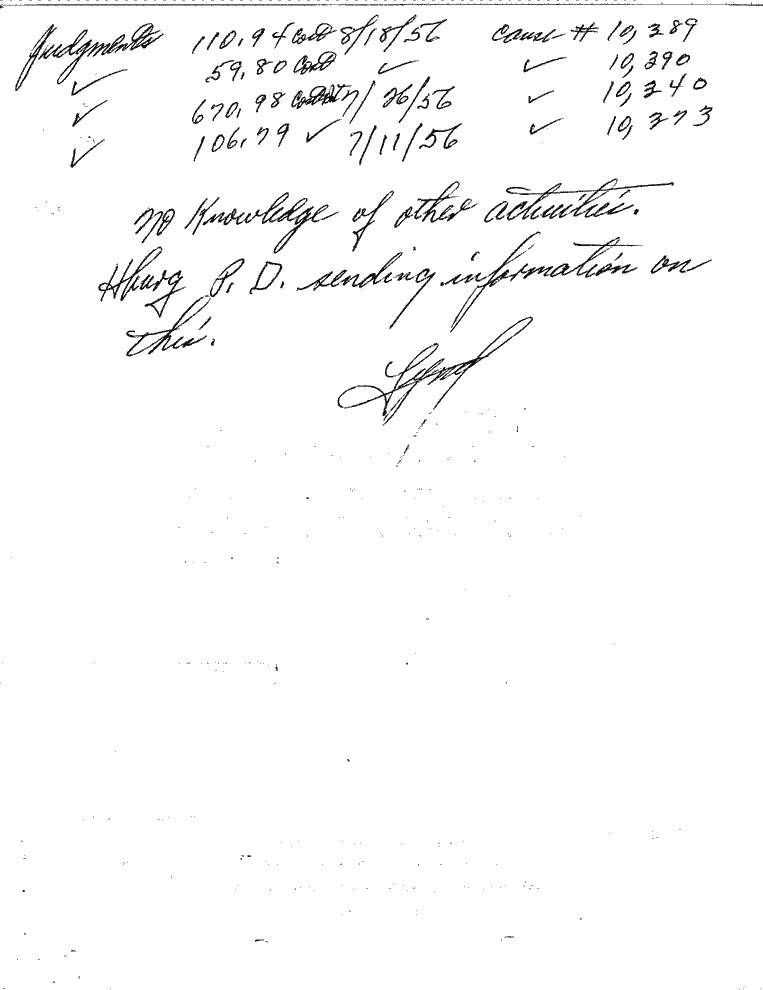 Judgments 110.94 Cost 8/18/56 cause # 10,389
✓ 59.80 Cost ✓ ✓ 10,390
✓ 670.98 7/26/56 ✓ 10,340
✓ 106.79 ✓ 7/11/56 ✓ 10,373
No Knowledge of other activities.
Hburg P. D. sending information on
this.